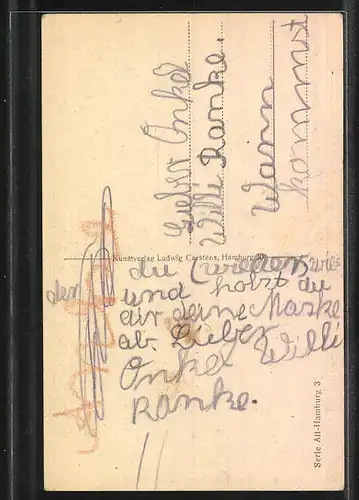 Lieber Onkel
Willi Ranke.
Wann
kommst
du wieder
und holst du
dir deine Marke
ab. Lieber Willi
Onkel
Ranke.
der
Kunstverlag Ludwig Carstens, Hamburg
Serie Alt-Hamburg 3